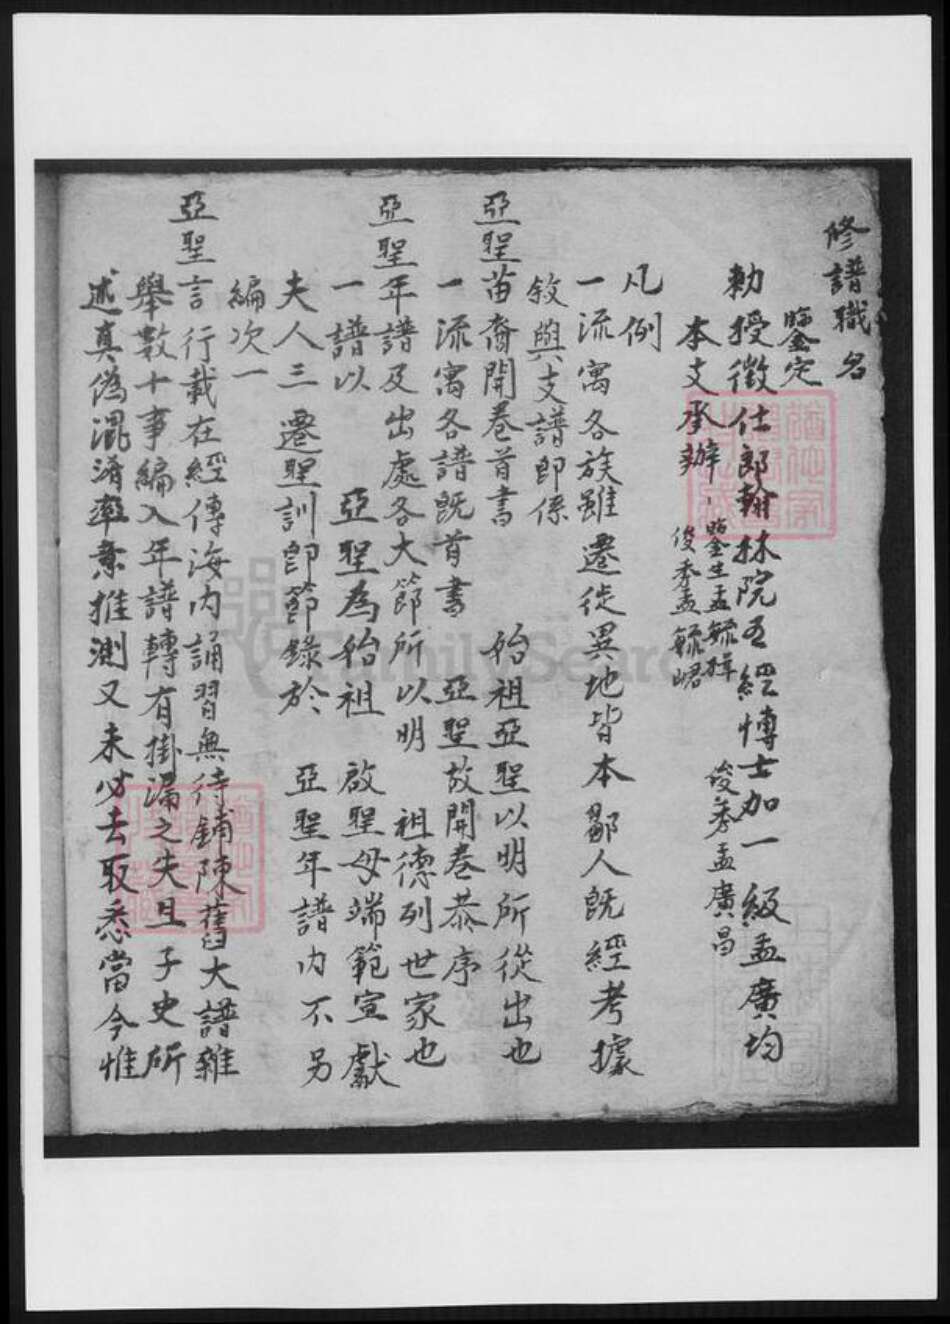 修譜職名
鑒定
勅授徵仕郎翰林院五經博士加一級孟廣均
本支承辦
鑒生孟毓撰
俊秀孟毓崌
俊秀孟廣昌
凡例
一流寓各族雖遷徙異地皆本鄒人既經考據
敘與支譜即係
亞聖苗裔開卷首書 始祖亞聖以明所從出也
一流寓各譜既首書 亞聖故開卷恭序
亞聖年譜及出處各大節所以明 祖德列世家也
一譜以 亞聖為始祖 啟聖母端範宣獻
夫人三遷聖訓即節錄於 亞聖年譜内不另
編次一
亞聖言行載在經傳海内誦習無待鋪陳舊大譜雜
舉數十事編入年譜轉有掛漏之失且子史所
述真偽混淆率業推測又未必去取悉當今惟
FamilySearch